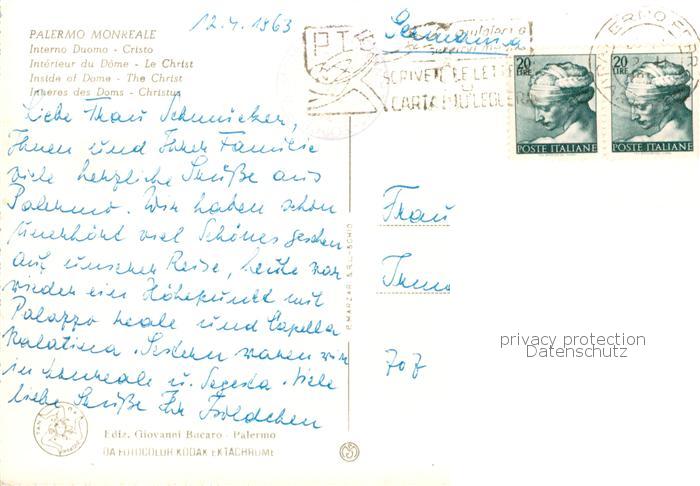 12.4.1963
PALERMO MONREALE
Interno Duomo - Cristo
Intérieur du Dôme - Le Christ
Inside of Dome - The Christ
Inneres des Doms - Christus
Liebe Frau Schmücker,
Ihnen und Ihrer Familie
viele herzliche Grüße aus
Palermo. Wir haben schon
unerhört viel Schönes gesehen
auf unserer Reise, heute war
wieder ein Höhepunkt mit
Palazzo reale und Capella
Palatina. Gestern waren wir
in Monreale u. Segesta. Viele
liebe Grüße Ihr Isoldchen
Ediz. Giovanni Bucaro - Palermo
DA FOTOCOLOR KODAK EKTACHROME
Germania
SCRIVETE LE LETTERE
CARTA PIÙ LEGGERA
20 LIRE
POSTE ITALIANE
20 LIRE
POSTE ITALIANE
Frau
707
privacy protection
Datenschutz